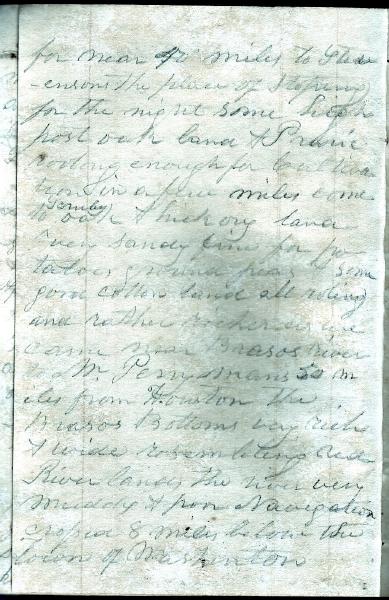 for near 40 miles to Stev
-ensons the place of stoping
for the night some high
post oak land & Prairie
roling enough for Cultiva
tion in a few miles come
to scruby oak & hickory land
very sandy fine for po
tatoes ground peas & some
good cotton land all roling
and rather as we
came near Brasos River
to Mr Perrymans 50 m
iles from Houston the
Brasos Bottoms very rich
& wide resembling Red
River lands the river very
muddy & poor Navigation
croped 8 miles below the
town of Washinton